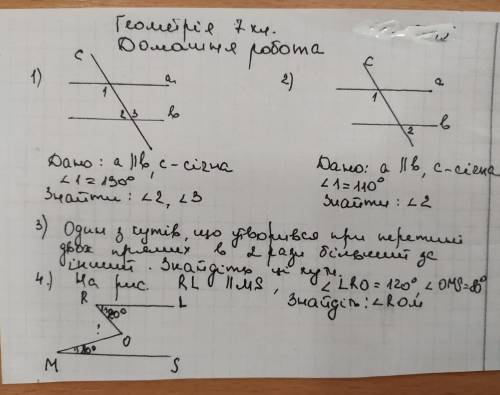 Геометрія 7 кл.
Домашня робота
1)
c
a
1
2 3
b
Дано: a ∥ b, c - січна
∠1 = 130°
Знайти: ∠2, ∠3
2)
c
a
1
2
b
Дано: a ∥ b, c - січна
∠1 = 110°
Знайти: ∠2
3) Один з кутів, що утворився при перетині
двох прямих в 2 рази більший за
інший. Знайдіть ці кути.
4.) На рис. RL ∥ MS, ∠LRO = 120°, ∠OMS = 80°
Знайдіть: ∠ROM
R L
120°
O
M S